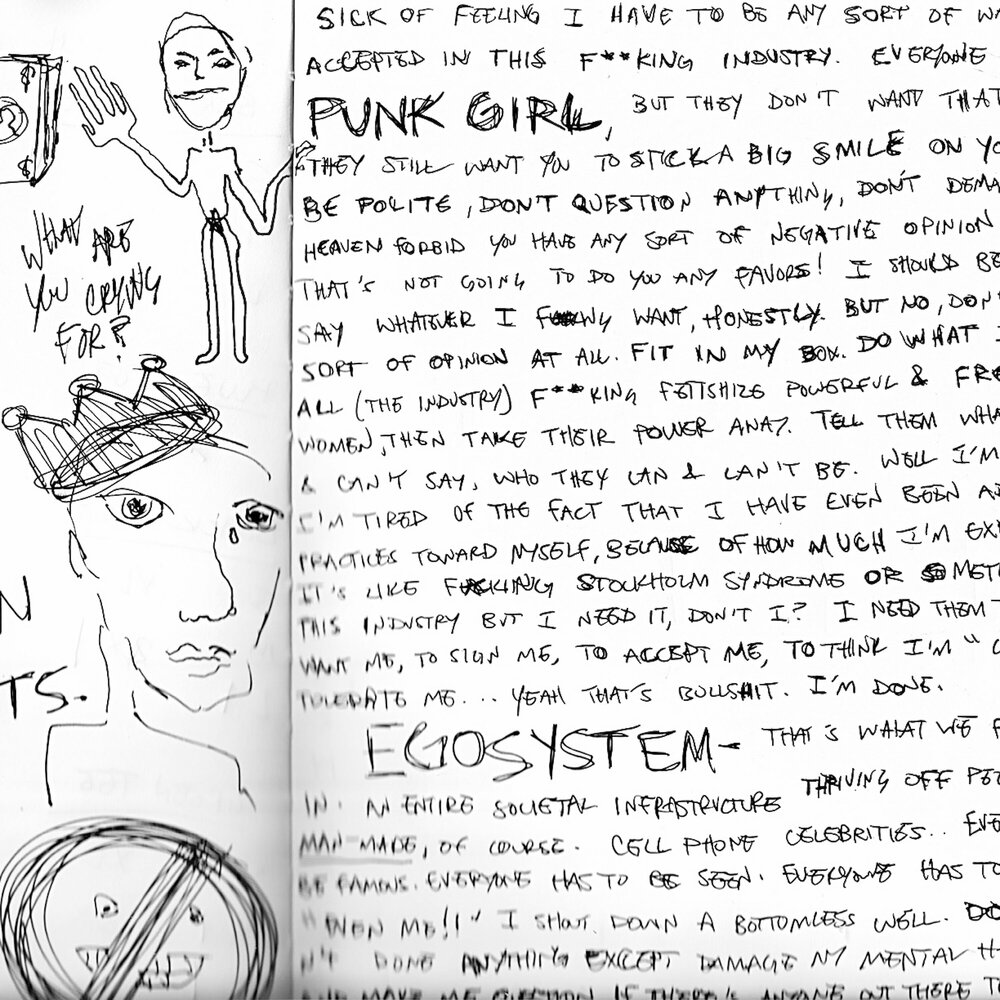 WHAT ARE
YOU CRYING
FOR?
N
TS.
SICK OF FEELING I HAVE TO BE ANY SORT OF WA
ACCEPTED IN THIS F**KING INDUSTRY. EVERYONE
PUNK GIRL, BUT THEY DON'T WANT THAT
THEY STILL WANT YOU TO STICK A BIG SMILE ON YO
BE POLITE, DON'T QUESTION ANYTHING, DON'T DEMA
HEAVEN FORBID YOU HAVE ANY SORT OF NEGATIVE OPINION
THAT'S NOT GOING TO DO YOU ANY FAVORS! I SHOULD BE
SAY WHATEVER I WANT, HONESTLY. BUT NO, DON'
SORT OF OPINION AT ALL. FIT IN MY BOX. DO WHAT I
ALL (THE INDUSTRY) F**KING FETISHIZE POWERFUL & FRE
WOMEN, THEN TAKE THEIR POWER AWAY. TELL THEM WHA
& CAN'T SAY, WHO THEY CAN & CAN'T BE. WELL I'M
I'M TIRED OF THE FACT THAT I HAVE EVEN BEEN A
PRACTICES TOWARD MYSELF, BECAUSE OF HOW MUCH I'M EX
IT'S LIKE FUCKING STOCKHOLM SYNDROME OR SOMETH
THIS INDUSTRY BUT I NEED IT, DON'T I? I NEED THEM T
WANT ME, TO SIGN ME, TO ACCEPT ME, TO THINK I'M "C
TOLERATE ME... YEAH THAT'S BULLSHIT. I'M DONE.
EGOSYSTEM- THAT'S WHAT WE
THRIVING OFF PE
IN. AN ENTIRE SOCIETAL INFRASTRUCTURE
MAN-MADE, OF COURSE. CELL PHONE CELEBRITIES.. EVE
BE FAMOUS. EVERYONE HAS TO BE SEEN. EVERYONE HAS TO
"EVEN ME!!" I SHOUT DOWN A BOTTOMLESS WELL.
N'T DONE ANYTHING EXCEPT DAMAGE MY MENTAL H
AND MAKE ME QUESTION IF THERE'S ANYONE OUT THERE T